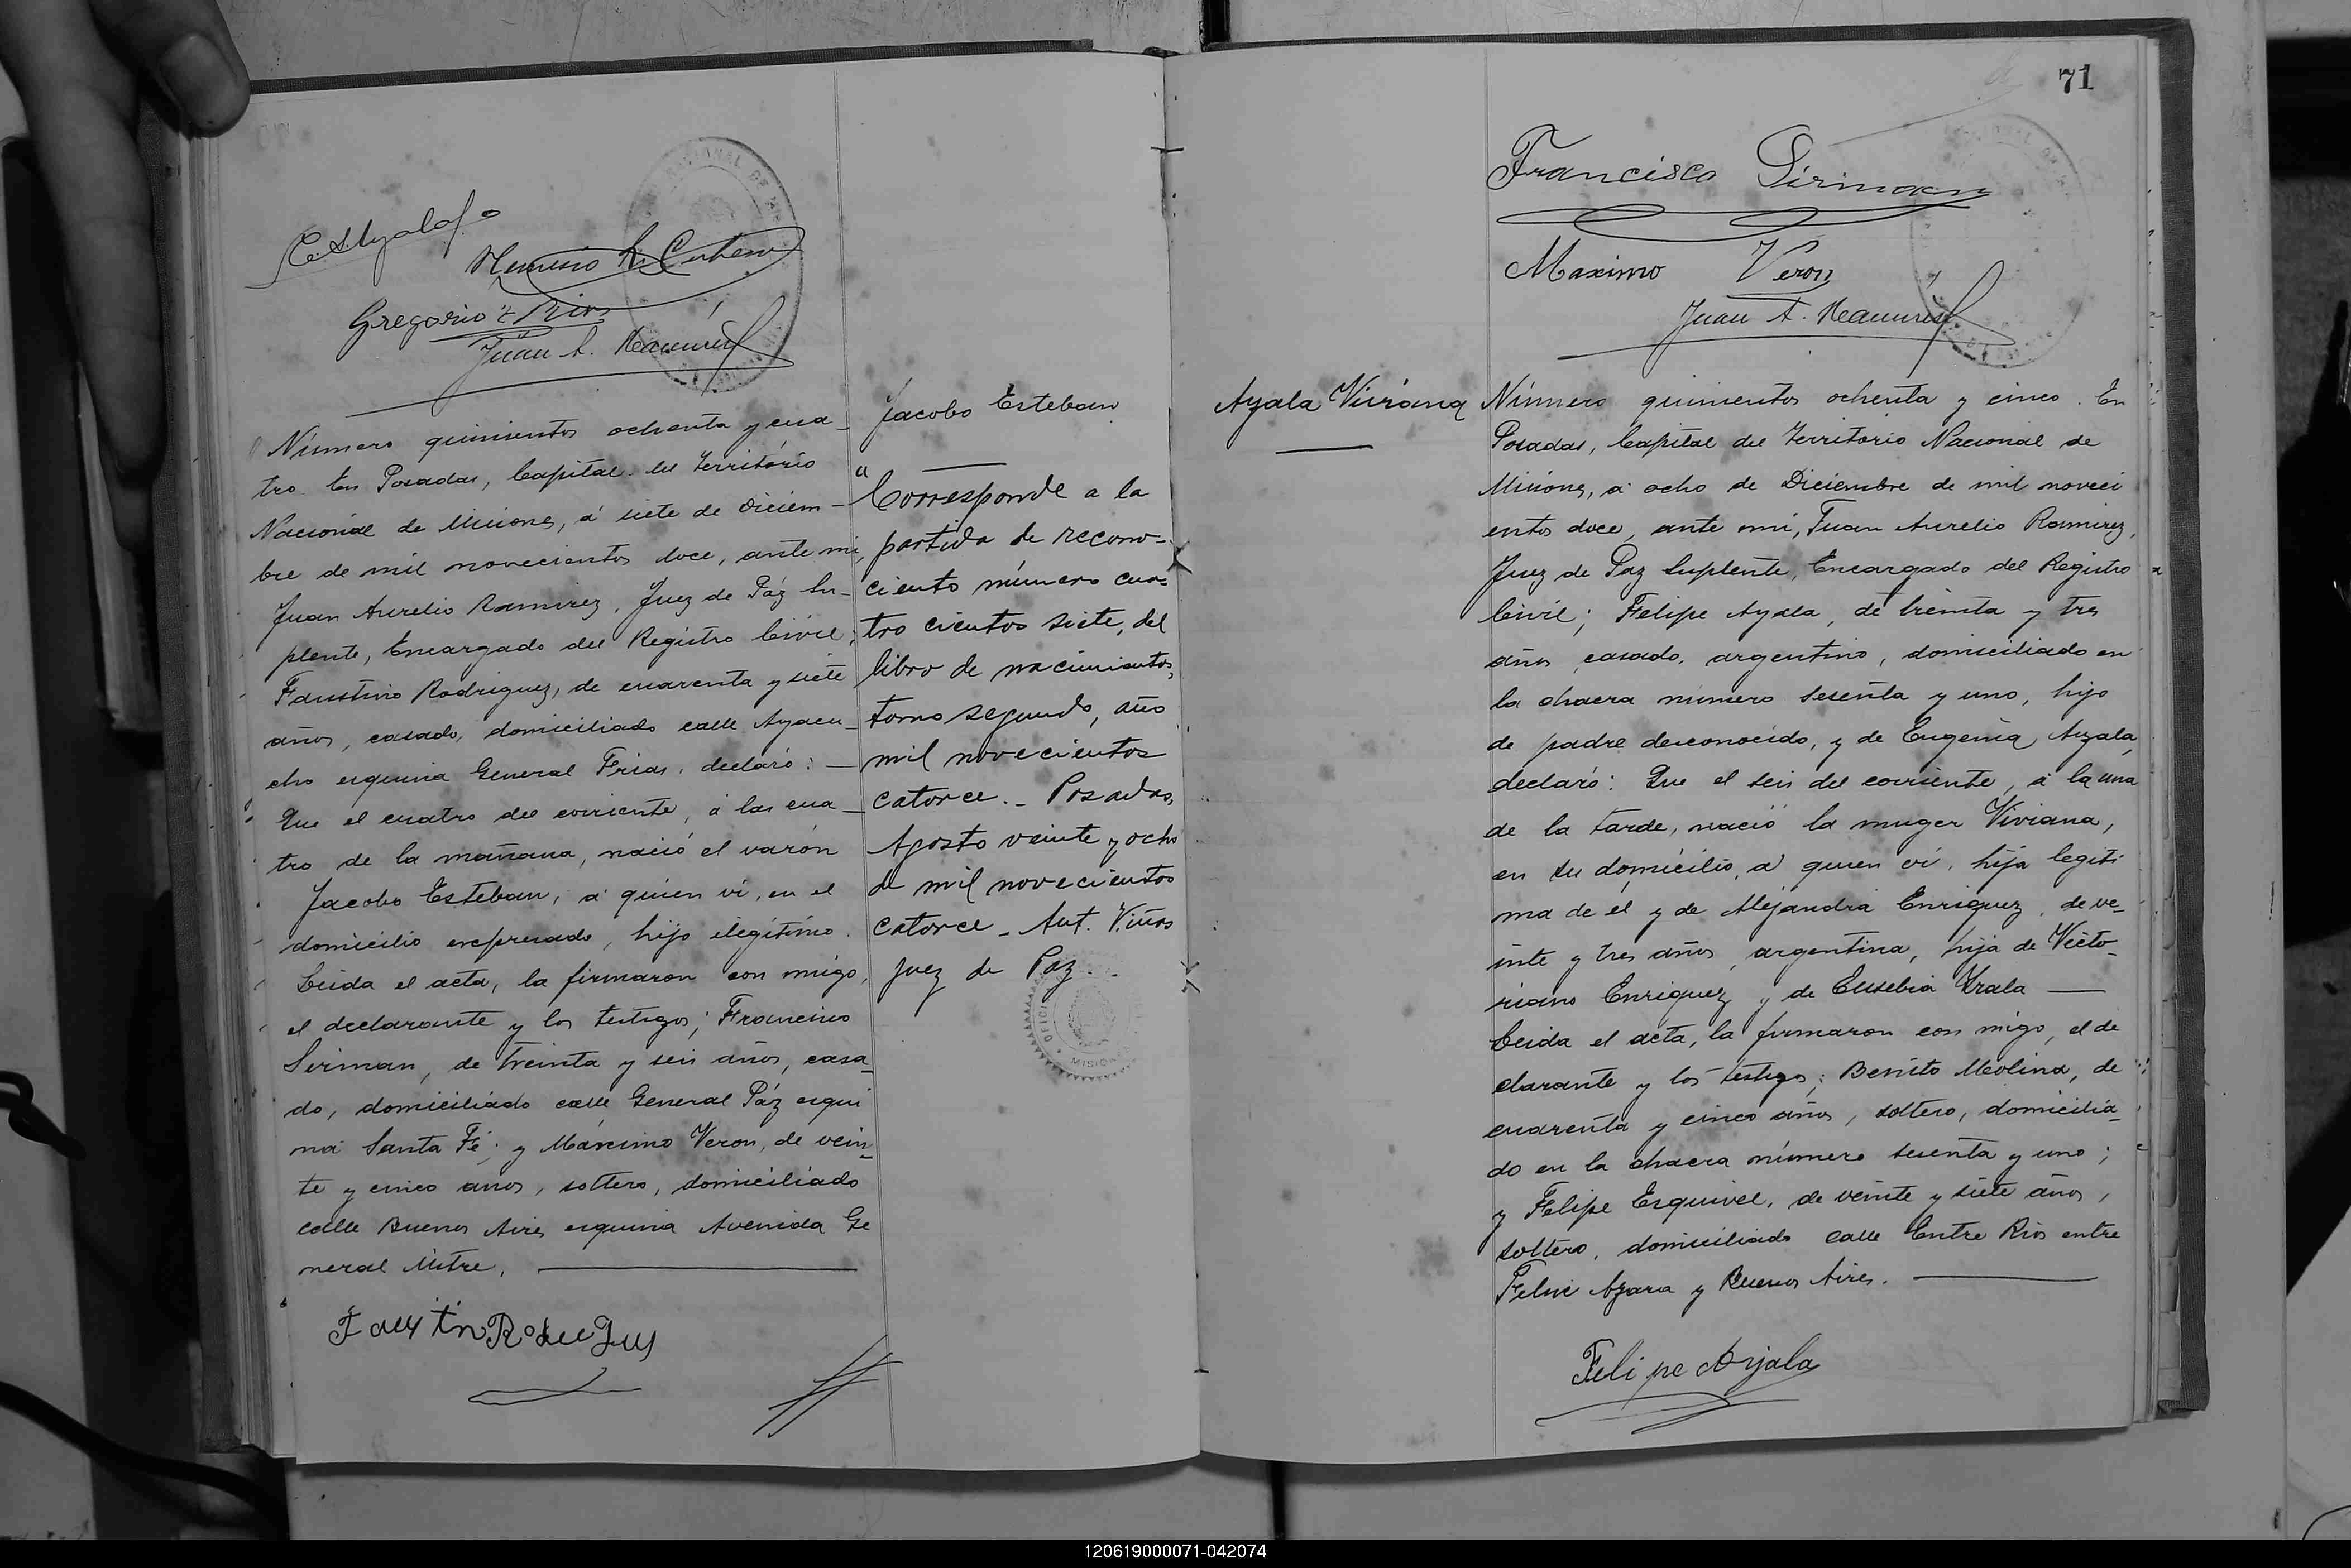 Gregorio Z Rios
Juan A. Ramírez
Número quinientos ochenta y cua-
tro. En Posadas, Capital del Territorio
Nacional de Misiones, á siete de Diciem-
bre de mil novecientos doce, ante mi,
Juan Aurelio Ramirez, Juez de Páz Su-
plente, Encargado del Registro Civil;
Faustino Rodriguez, de cuarenta y siete
años, casado, domiciliado calle Ayacu-
cho esquina General Frias, declaró: —
Que el cuatro del corriente, á las cua-
tro de la mañana, nació el varón
Jacobo Esteban, á quien vi, en el
domicilio expresado, hijo ilegítimo.
Leida el acta, la firmaron con migo,
el declarante y los testigos; Francisco
Sirman, de treinta y seis años, casa-
do, domiciliado calle General Páz esqui
na Santa Fé; y Máximo Veron, de vein-
te y cinco años, soltero, domiciliado
calle Buenos Aires esquina Avenida Ge
neral Mitre.
Jacobo Esteban
"Corresponde a la
partida de recono-
ciento número cua-
tro cientos siete, del
libro de nacimientos,
tomo segundo, año
mil novecientos
catorce._ Posadas,
Agosto veinte y ocho
de mil novecientos
catorce - Ant. Viñas
juez de Paz.
71
Francisco Sirman
Maximo Veron
Juan A. Ramírez
Ayala Viviana
Número quinientos ochenta y cinco. En
Posadas, Capital del Territorio Nacional de
Misiones, á ocho de Diciembre de mil noveci
entos doce, ante mi, Juan Aurelio Ramirez,
Juez de Paz Suplente, Encargado del Registro
Civil; Felipe Ayala, de treinta y tres
años, casado, argentino, domiciliado en
la chacra numero sesenta y uno, hijo
de padre desconocido, y de Eugenia Ayala,
declaró: Que el seis del corriente, á la una
de la tarde, nació la muger Viviana,
en su domicilio, a quien vi, hija legiti
ma de él y de Alejandra Enriquez, de ve-
inte y tres años, argentina, hija de Victo-
riano Enriquez y de Eusebia Yrala —
Leida el acta, la firmaron con migo, el de
clarante y los testigos; Benito Molina, de
cuarenta y cinco años, soltero, domicilia-
do en la chacra número sesenta y uno;
y Felipe Esquivel, de veinte y siete años,
soltero, domiciliado calle Entre Rios entre
Felix Azara y Buenos Aires.
Felipe Ayala
120619000071-042074